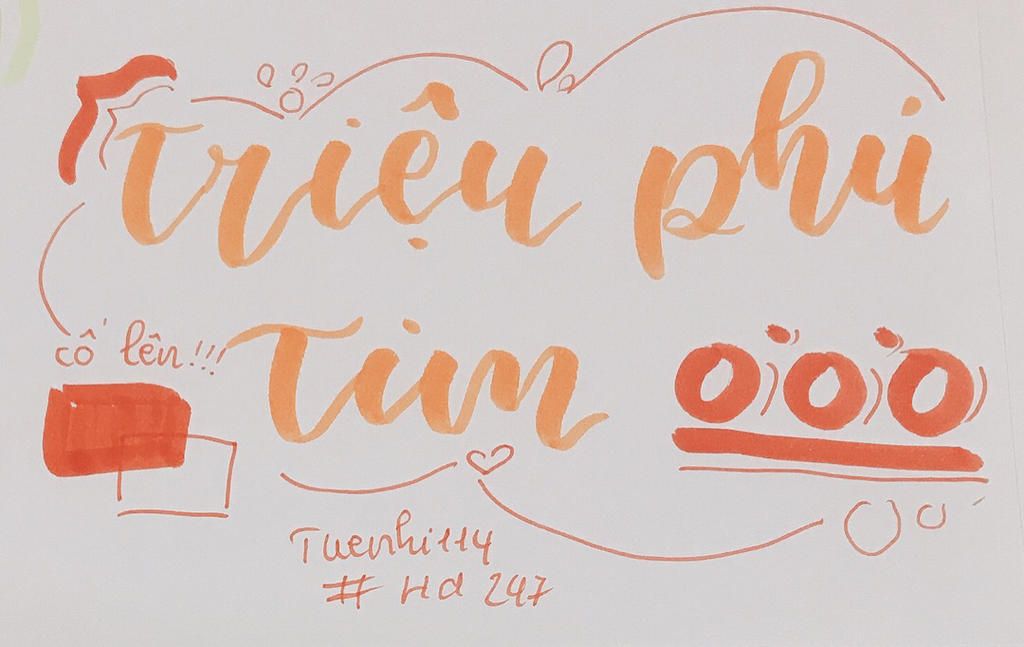 triệu phú
cố lên!!!
Tim
Tuenhitty
# Hd 247